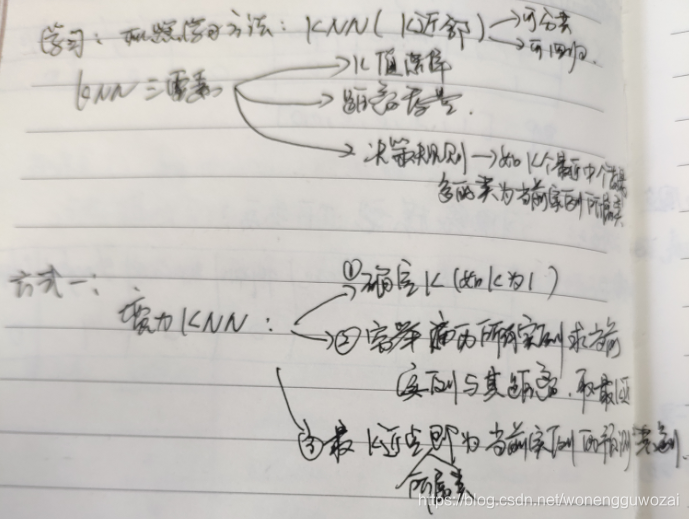 学习: 机器学习方法: KNN(K近邻) → 可分类
→ 可回归.
KNN三要素
→ K值选择
→ 距离度量.
→ 决策规则 → 如K个最近中个数
多的类为当前实例所属类
方式一:
暴力KNN:
① 确定K(如K为1)
② 穷举 所有实例 求当前
实例与其距离. 取最近
③ 最K近点即为当前实例的预测类别.
所属类
https://blog.csdn.net/wonengguwozai